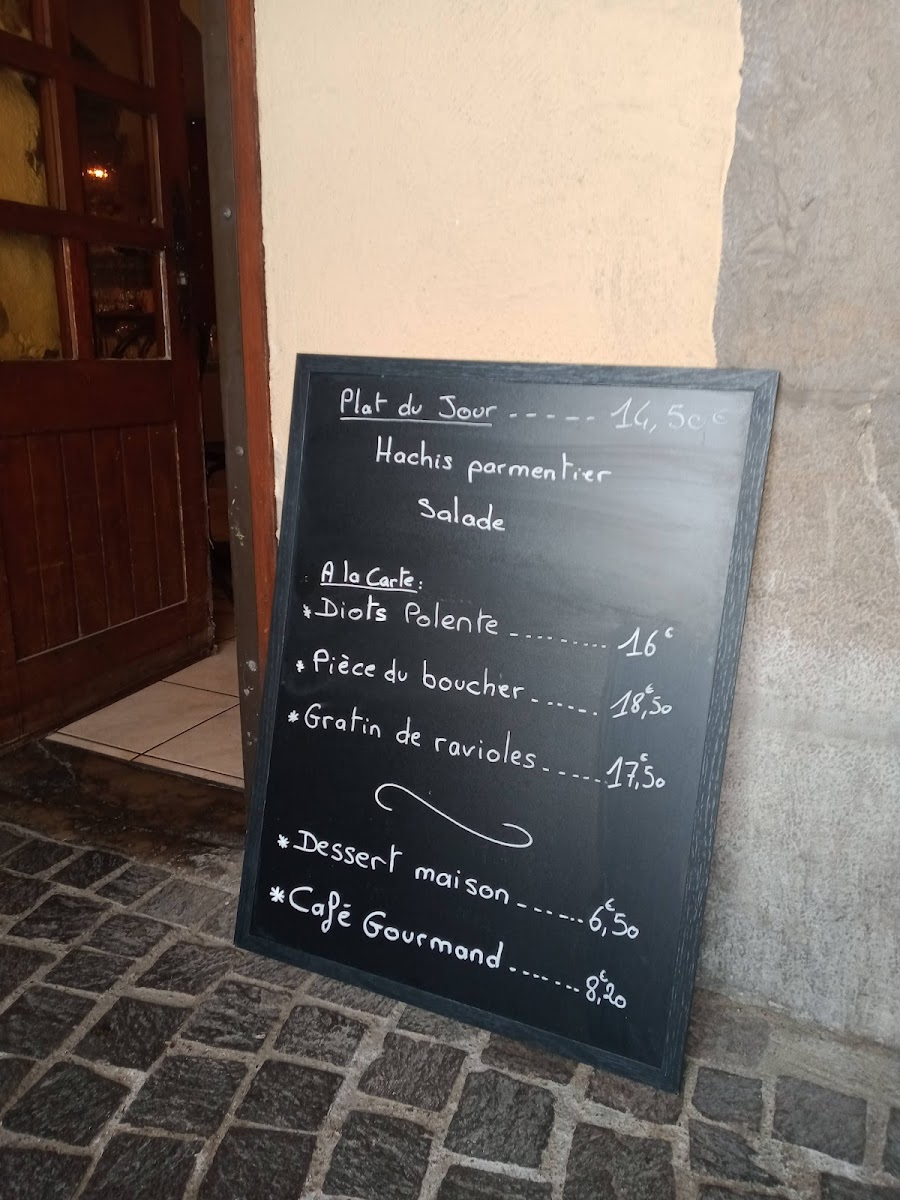 Plat du Jour ----- 14,50€
Hachis parmentier
Salade
A la Carte:
* Diots Polente ---------- 16€
* Pièce du boucher ------ 18,50€
* Gratin de ravioles ------ 17,50€
* Dessert maison ------ 6,50€
* Café Gourmand ------- 8,20€